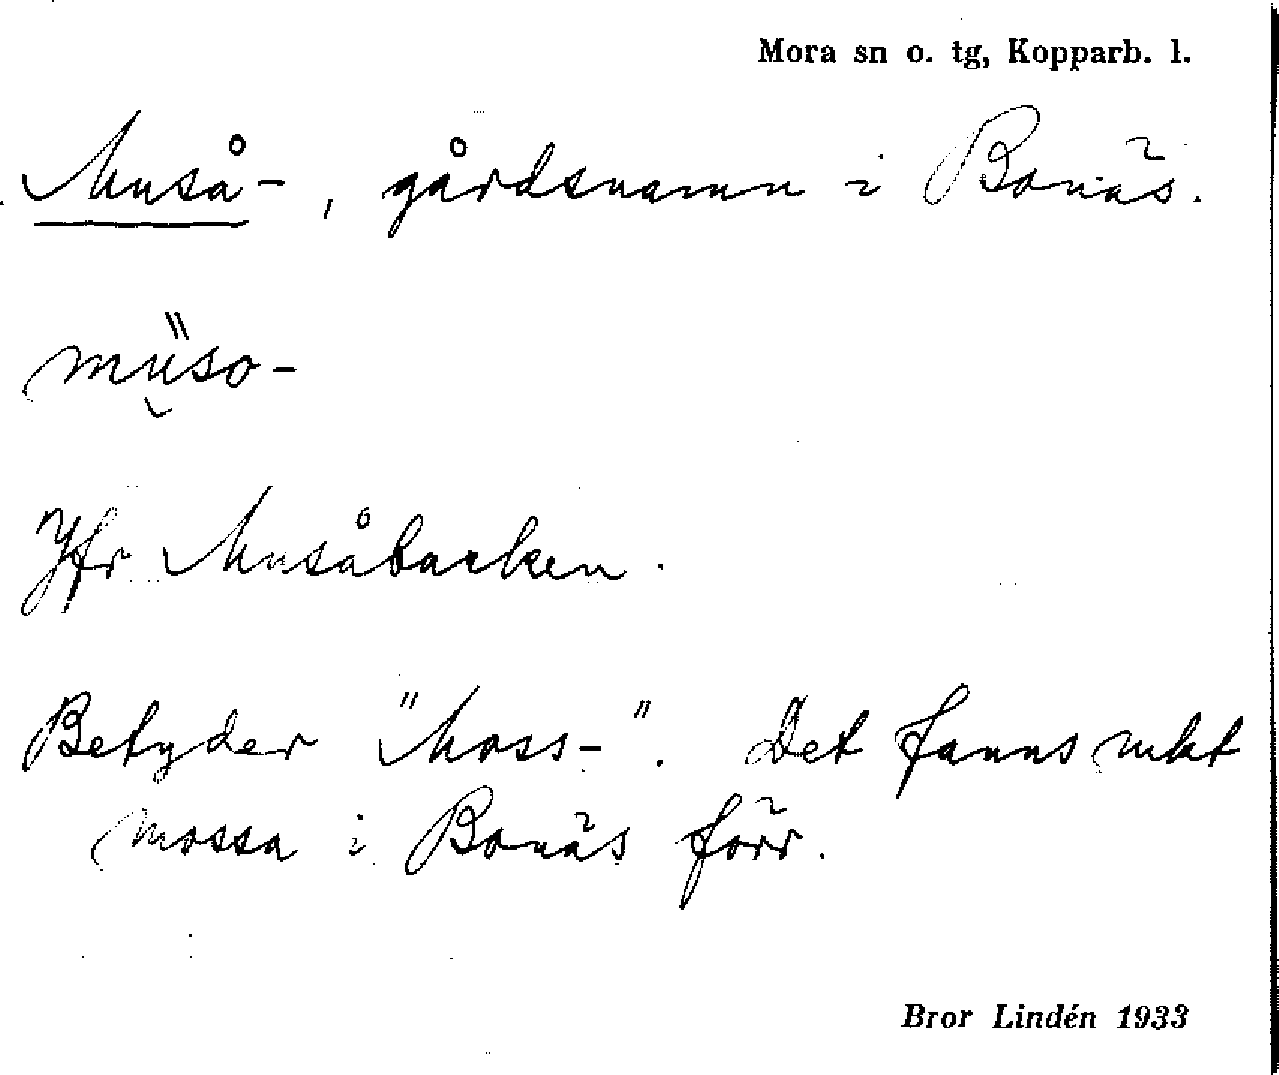 Mora sn o. tg, Kopparb. l.
Muså-, gårdsnamn i Bonäs.
müso-
Jfr Musåbacken.
Betyder "Moss-". Det fanns mkt
mossa i Bonäs förr.
Bror Lindén 1933